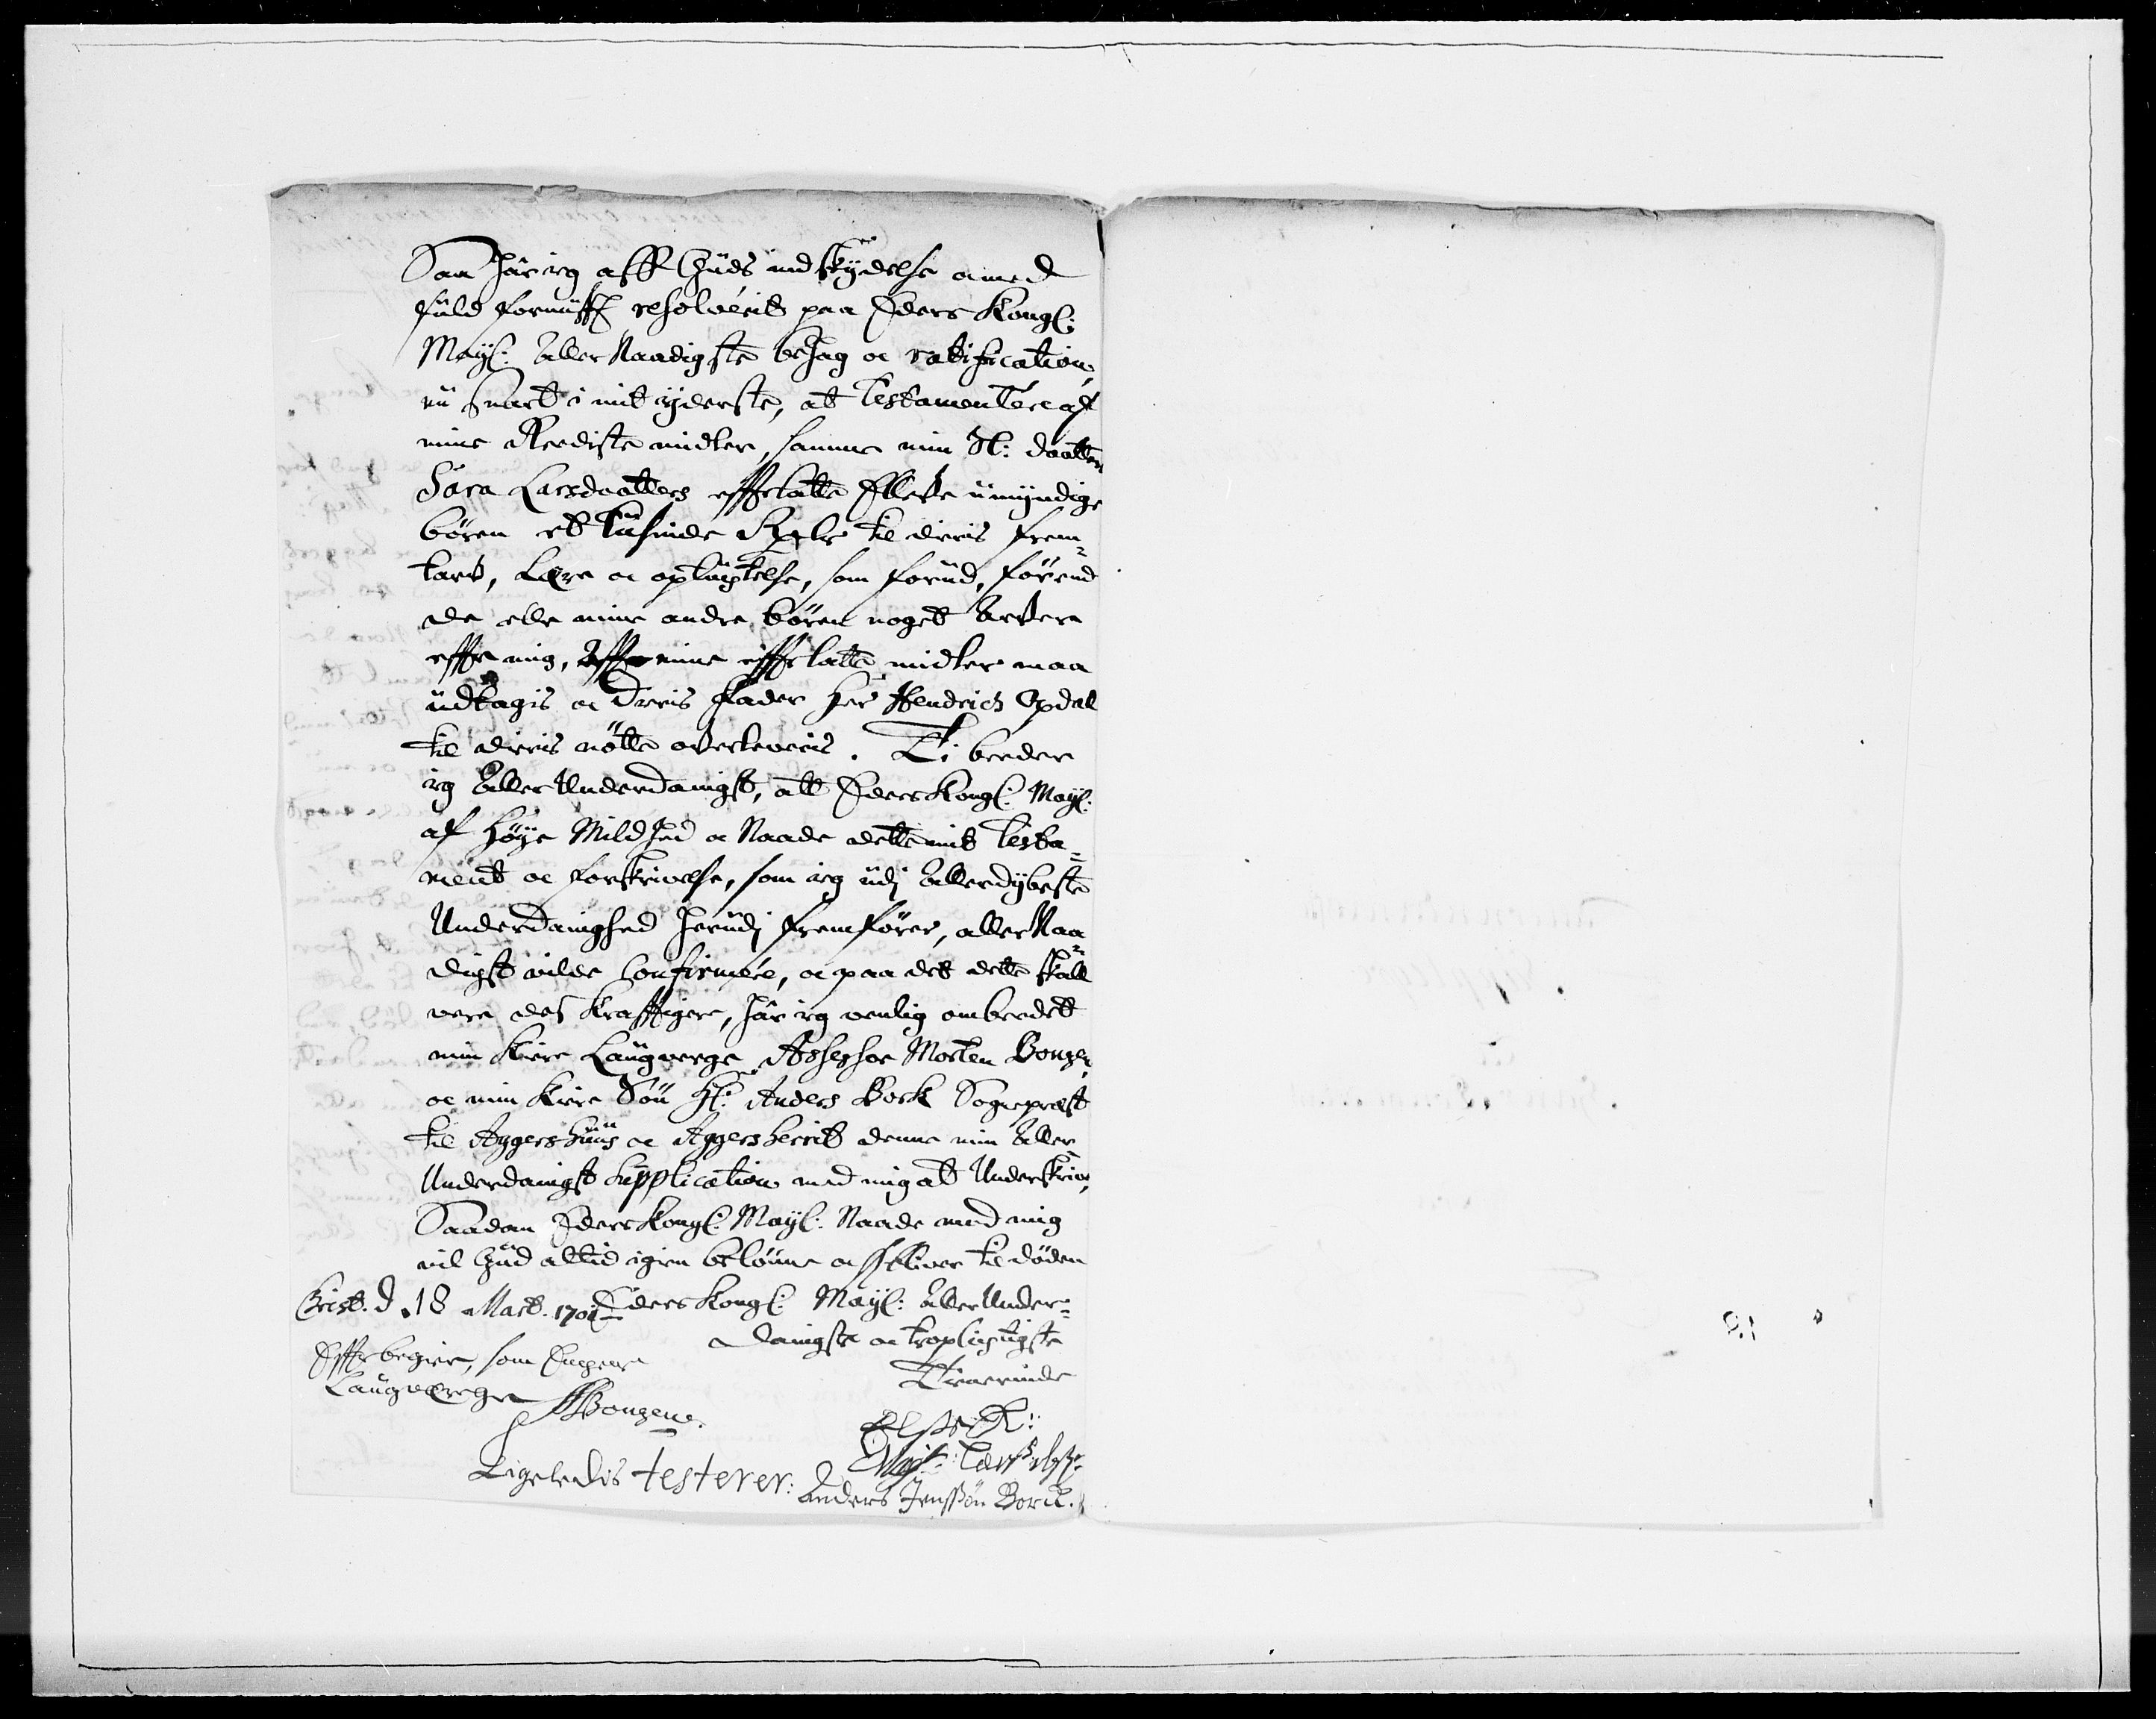 Saa har ieg aff Guds indskÿdelse a med
fuld fornufft resolverit paa Eders Kongl:
Mayt: Aller Naadigste behag oc ratification,
nu snart i mit yderste, at Testamentere af
mine Reediste midler, samme min Sl: daatter
Sara Larsdaatters effterlatte Elleve umyndige
børen et tusinde Rixdlr til deris frem¬
tarv, Lære oc optuchtelse, som forud, førend
de elle mine andre børen noget Arver
effter mig, Aff mine effterlatte midler maa
udtagis oc deris fader Her Hendrich Opdal
til deris nøtte oftverleveris. Ti beeder
ieg Aller Underdanigst, att Eders Kongl: Mayt:
af Høye Mildhed oc Naade dette mit Testa¬
ment oc forskrivelse, som ieg udj Allerdybeste
Underdanighed herudj fremfører, aller Naa¬
digst vilde Confirmere, oc paa det dette skall
vere des krafftigere, har ieg venlig ombeedet
min kiere Laugverge Assessor Morten Bonge,
oc min kiere Søn Hr: Anders Bork Sognepræst
til Aggershuus oc Aggersherrit denne min Aller
Underdanigst Supplication med mig at Underskrive,
Saadan Eders Kongl: Mayt: Naade med mig
vil Gud altid igien belønne oc ieg bliver til døden
Crist. d. 18 Mart. 1701 Eders Kongl: Mayt: Aller Under¬
danigste oc tropligtigste
Tienerinde
Effter begier, som
Laugverge
MBongen.
Ligeledis testerer: Anders Jenssøn Borck.